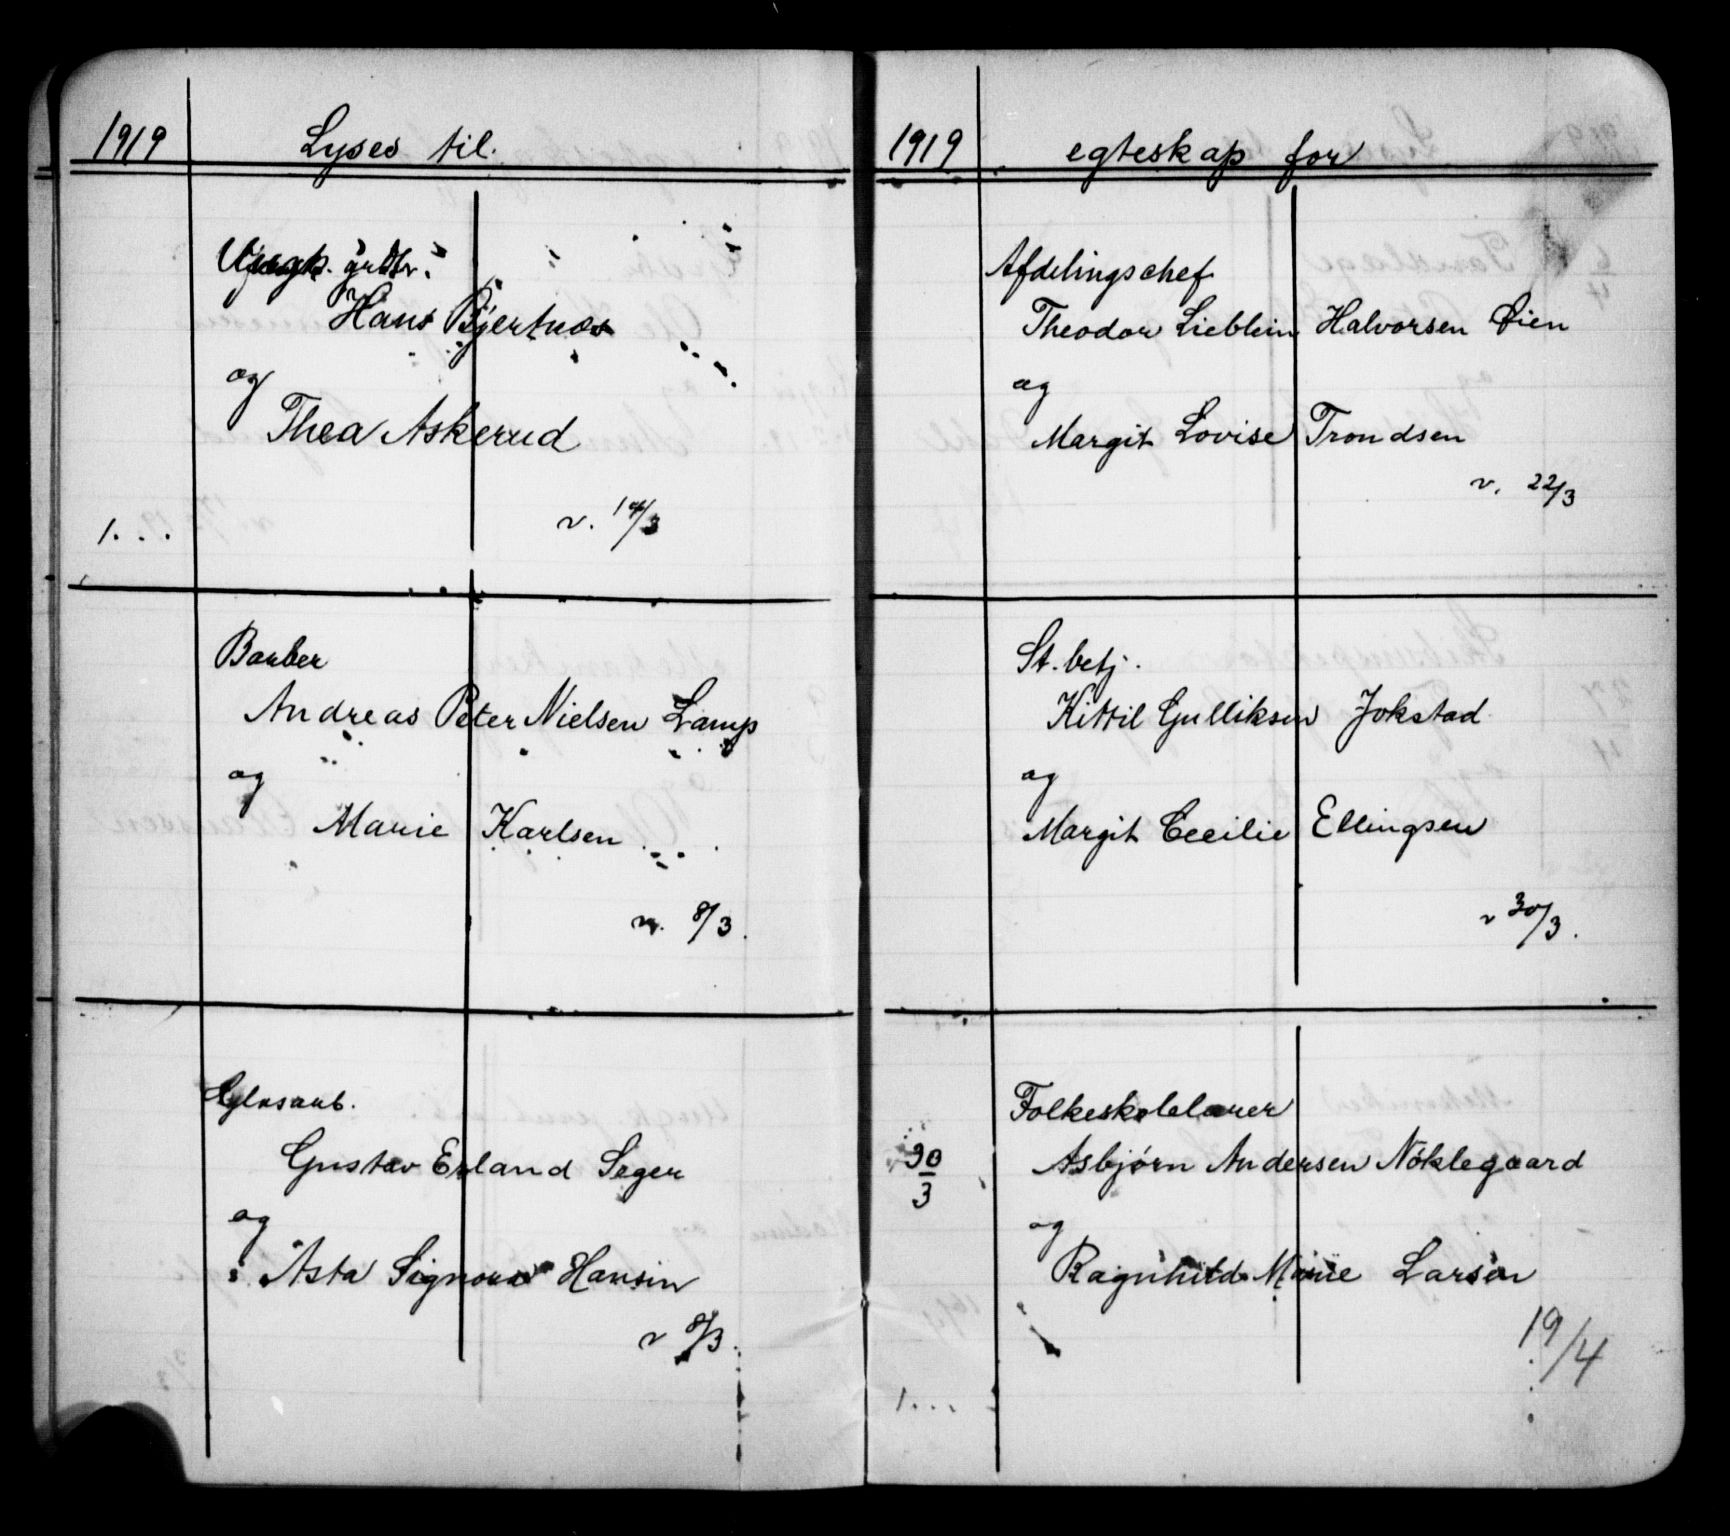 1919 Lyses til.
Ungk. grdbr.
Hans Bjertnæs
og
Thea Askerud
1...
v. 14/3
Barber
Andreas Peter Nielsen Lamp
og
Marie Karlsen
v. 8/3.
Glasarb.
Gustav Erland Seger
og
Asta Signora Hansen
v 8/3.
1919 egteskap for
Afdelingschef
Theodor Lieblein Halvorsen Øien
og
Margit Lovise Trondsen
v. 22/3
St. betj.
Kittil Gulliksen Jokstad
og
Margit Cecilie Ellingsen
v 30/3.
Folkeskolelærer
30/3 Asbjørn Andersen Nöklegaard
og
Ragnhild Marie Larsen
19/4
1...